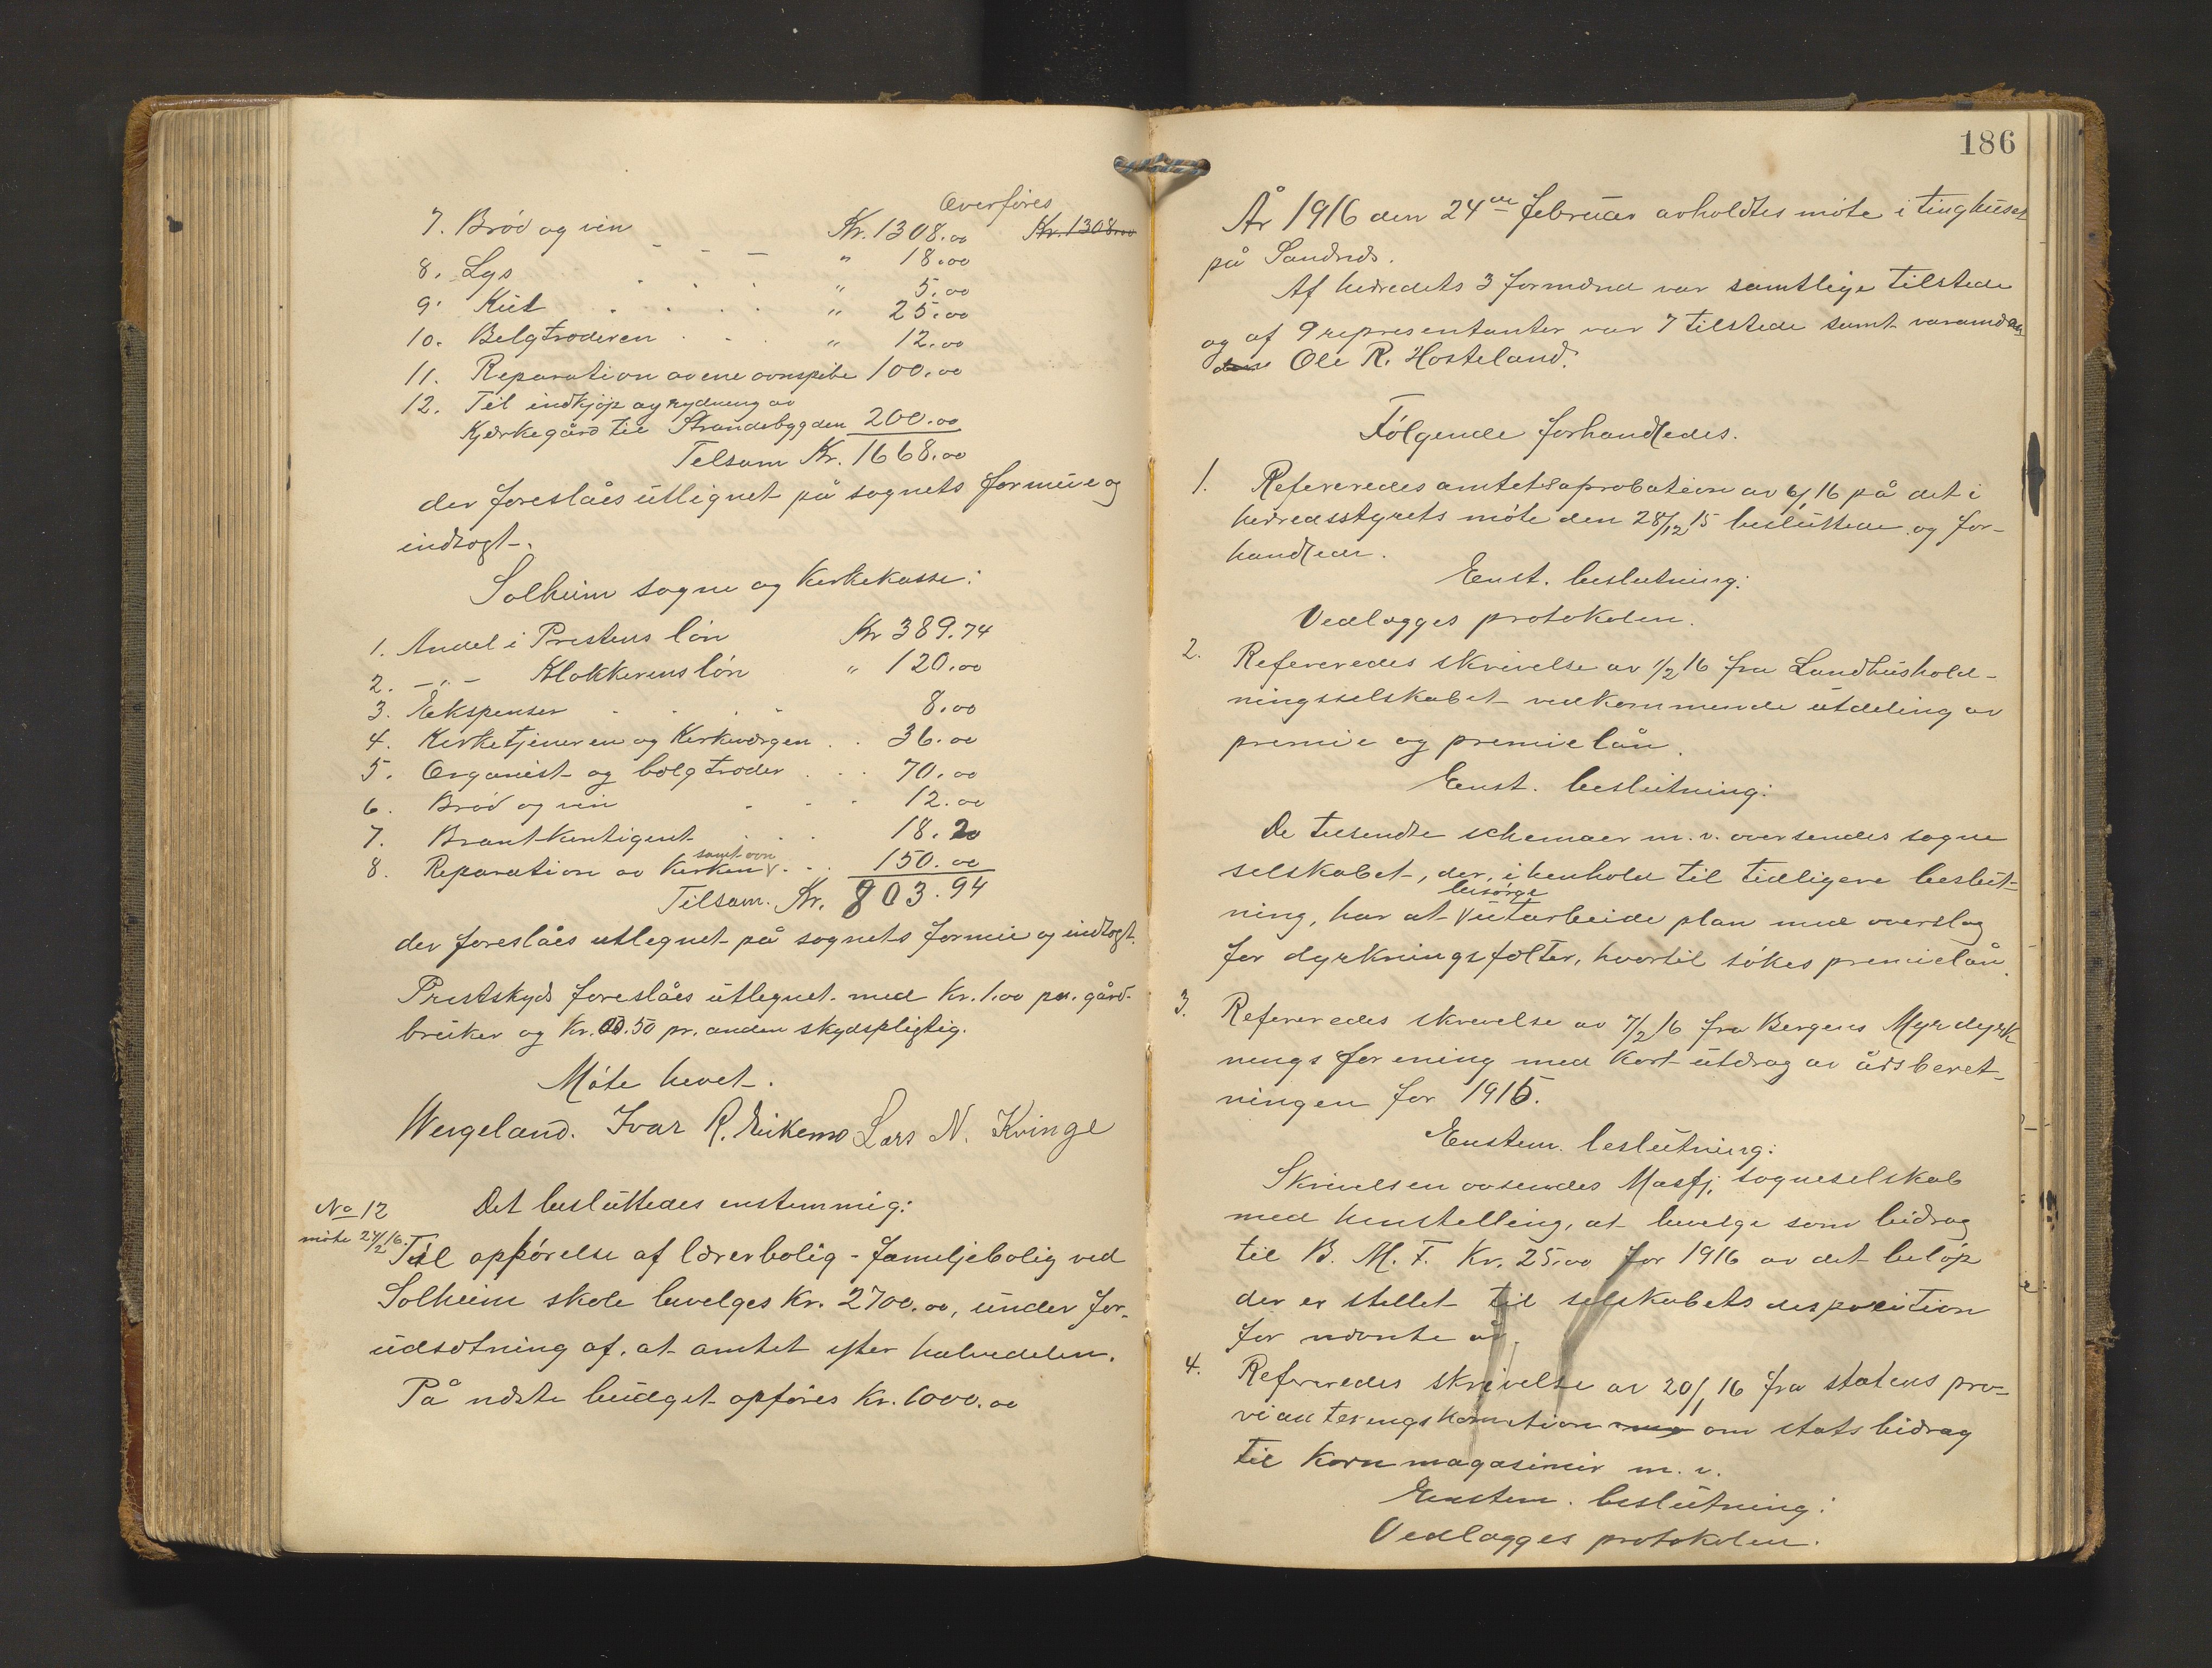 Overføres
Kr. 1308.00 Kr. 1308.00
7. Brød og vin " 18.00
8. Lys " 5.00
9. Kul " 25.00
10. Belgtræderen " 12.00
11. Reparation av ene ovnspibe 100.00
12. Til indkjøp og rydning av
Kjerkegård til Strandebygden 200.00
Tilsam Kr. 1668.00
der foreslåes utlignet på sognets formue og
indtægt.
Solheim sogne og Kirkekasse:
1. Andel i Prestens løn Kr 389.74
2. -"- Klokkerens løn " 120.00
3. Ekspenser 8.00
4. Kirketjeneren og Kirkeværgen 36.00
5. Organist og bælgtræder 70.00
6. Brød og vin 12.00
7. Brantkontigent 18.20
samt ovn
8. Reparation av Kirken V 150.00
Tilsam. Kr. 803.94
der foreslåes utlegnet på sognets formue og indtægt.
Prestskyds foreslåes utlegnet med Kr. 1.00 pr. gård-
bruker og Kr. 00.50 pr. anden skydspligtig.
Møte hevet.
Wergeland. Ivar R. Eikemo Lars N. Kvinge
No 12 Det besluttedes enstemmig:
møte 24/2 16.
Til opførelse af lærerbolig - familjebolig ved
Solheim skole bevelges Kr. 2700.00, under for-
udsætning af, at amtet yter halvedelen.
På næste budget opføres Kr. 1000.00
186
År 1916 den 24de februar avholdtes møte i tinghuset
på Sandnes.
Af herredets 3 formænd var samtlige tilstede
og af 9 representanter var 7 tilstede samt varamæn
dene Ole R. Hosteland.
Følgende forhandledes.
1. Refereredes amtets aprobation av 6/1 16 på det i
herredsstyrets møte den 28/12 15 besluttede og for-
handlede.
Enst. beslutning:
Vedlægges protokolen.
2. Refereredes skrivelse av 1/2 16 fra Landhushold-
ningsselskabet vedkommende utdeling av
premie og premielån.
Enst. beslutning:
De tilsendte schemaer m. v. oversendes sogne
selskabet, der, i henhold til tidligere beslut-
besørge
ning, har at V utarbeide plan med overslag
for dyrkningsfælter, hvortil søkes premielån.
3. Refereredes skrivelse av 7/2 16 fra Bergens Myrdyrk
nings forening med kort utdrag av årsberet-
ningen for 1915.
Enstem. beslutning:
Skrivelsen oversendes Masfj. sogneselskab
med henstelling, at bevelge som bidrag
til B. M. F. Kr. 25.00 for 1916 av det beløp
der er stellet til selskabets desposition
for nævnte år.
4. Refereredes skrivelse av 20/1 16 fra statens pro-
vianteringskomition om statsbidrag
til Kornmagasiner m. v.
Enstem. beslutning:
Vedlægges protokolen.